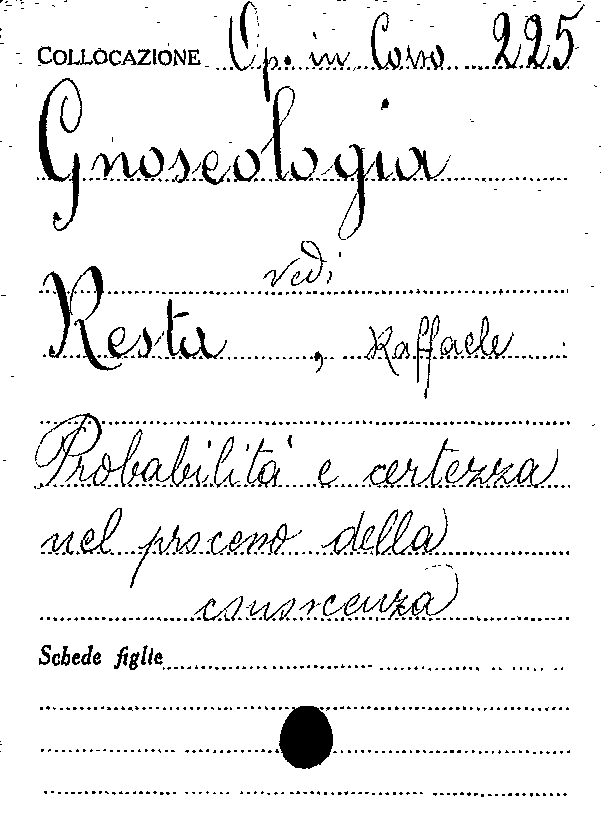 COLLOCAZIONE Op. in Corso 225
Gnoseologia
vedi
Resta, Raffaele
Probabilità e certezza
nel processo della
conoscenza
Schede figlie